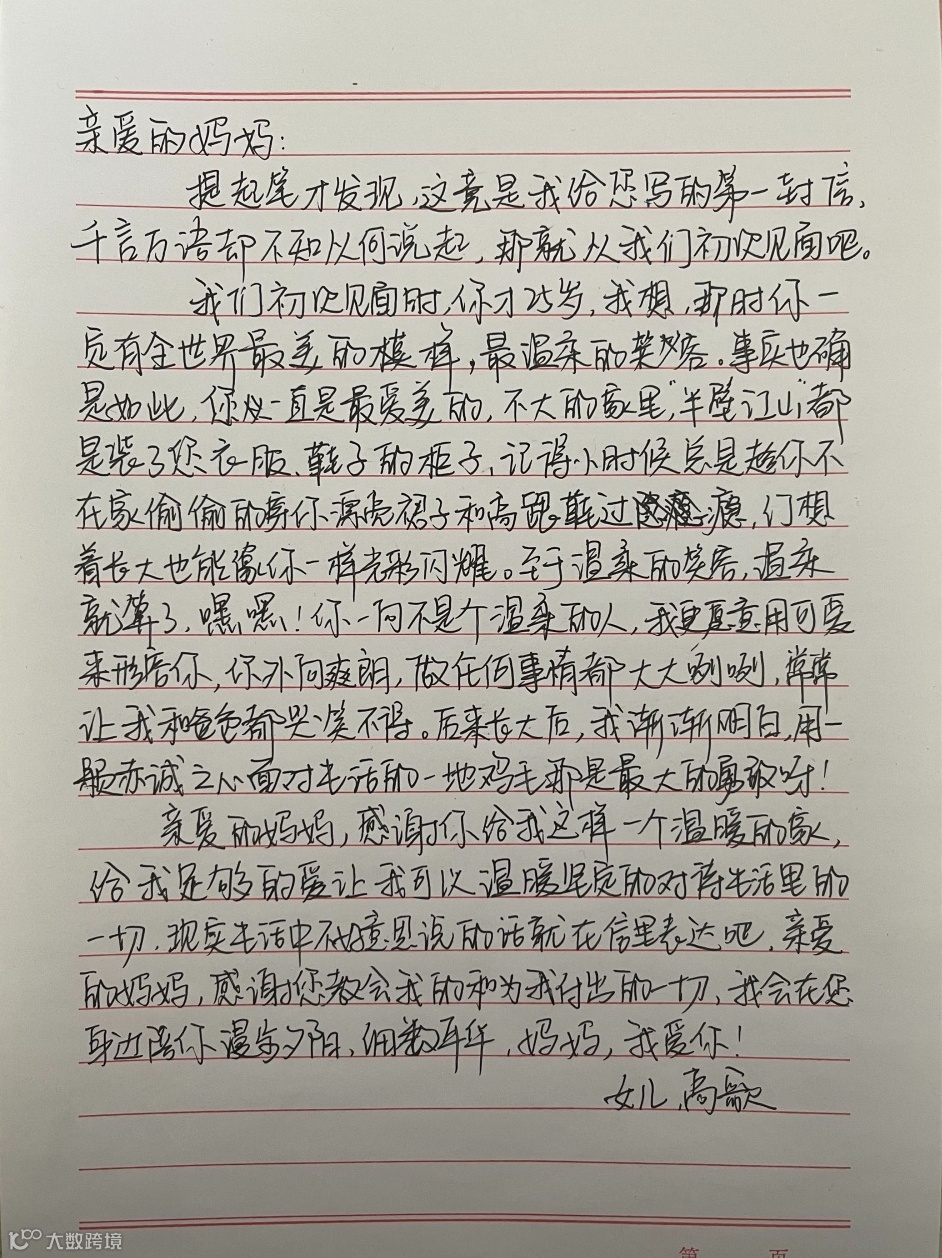 亲爱的妈妈：
提起笔才发现，这竟是我给您写的第一封信，
千言万语却不知从何说起，那就从我们初次见面吧。
我们初次见面时，你才25岁，我想，那时你一
定有全世界最美的模样，最温柔的笑容。事实也确
是如此，你从一直是最爱美的，不大的家里，"半壁江山"都
是装了您衣服、鞋子的柜子，记得小时候总是趁你不
在家偷偷的穿你漂亮裙子和高跟鞋过瘾，幻想
着长大也能像你一样光彩闪耀。至于温柔的笑容，温柔
就算了，嘿嘿！你一向不是个温柔的人，我更愿意用可爱
来形容你，你外向爽朗，做任何事情都大大咧咧，常常
让我和爸爸都哭笑不得。后来长大后，我渐渐明白，用一
颗赤诚之心面对生活的一地鸡毛那是最大的勇敢呀！
亲爱的妈妈，感谢你给我这样一个温暖的家，
给我足够的爱让我可以温暖坚定的对待生活里的
一切，现实生活中不好意思说的话就在信里表达吧，亲爱
的妈妈，感谢您教会我的和为我付出的一切，我会在您
身边陪你漫步夕阳、细数年华，妈妈，我爱你！
女儿，高歌
第 页
大数跨境